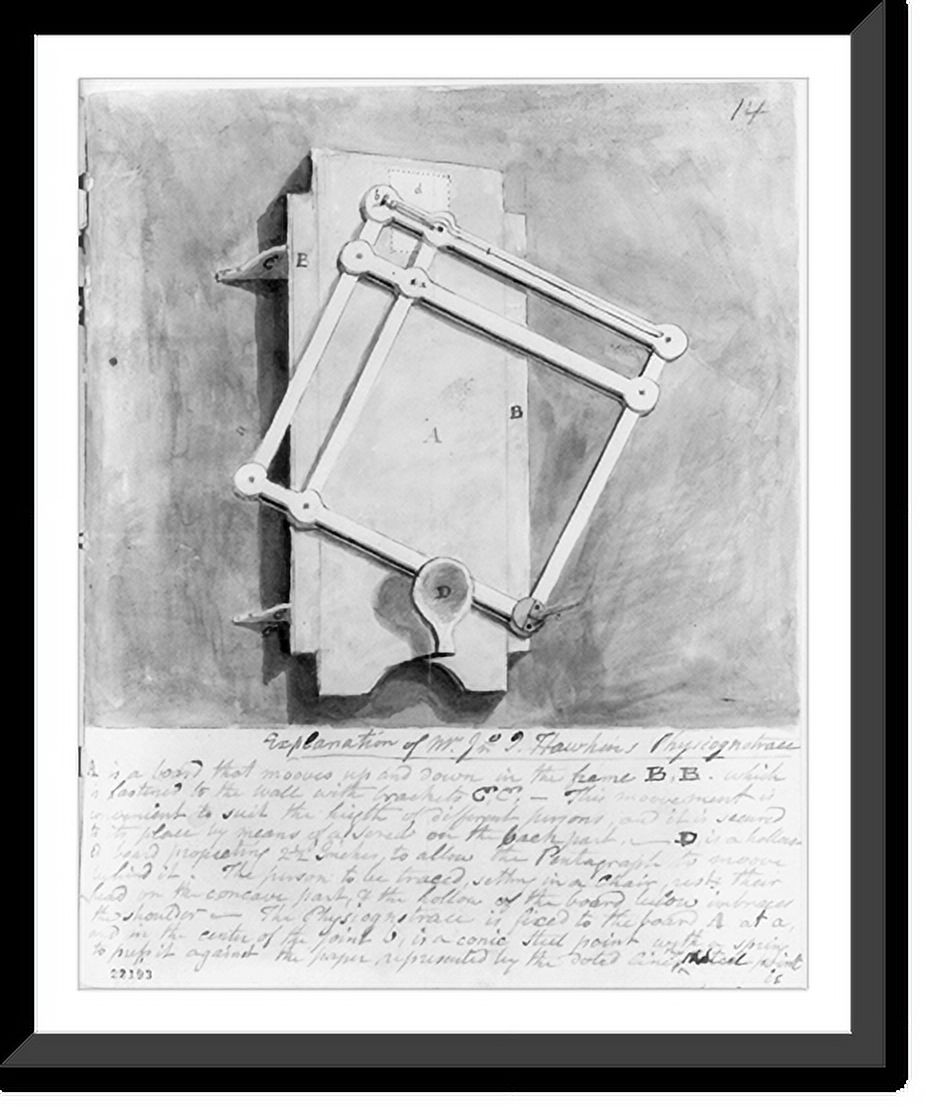 14
d
b
C
B
B
A
D
C
C
Explanation of Mr. Jno. I. Hawkins Physiognotrace
A is a board that mooves up and down in the frame B. B. which
is fastened to the wall with brackets C. C. — This moovement is
convenient to suit the higth of different persons, and it is secured
to its place by means of a screw on the back part. — D is a hollow
board projecting 2½ Inches, to allow the Pentagraph to moove
behind it. The person to be traced, setting in a Chair, rests their
head on the concave part, & the hollow of the board below imbraces
the shoulder — The Physiognotrace is fixed to the board A at a,
and in the center of the joint b, is a conic steel point with a spring
to press it against the paper represented by the doted lines steel point
is
22193